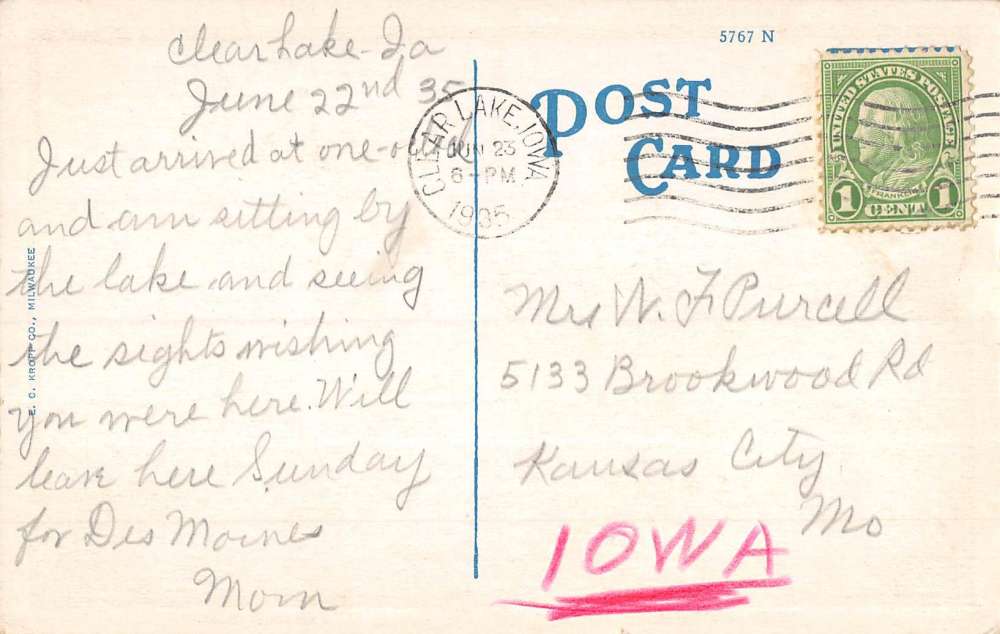 Clear Lake-Ia
June 22nd 35
Just arrived at one-o
and am sitting by
the lake and seeing
the sights wishing
you were here. Will
leave here Sunday
for Des Moines
Mom
E. C. KROPP CO., MILWAUKEE
5767 N
POST
CARD
CLEAR LAKE, IOWA
JUN 23
6-PM
1935
UNITED STATES POSTAGE
FRANKLIN
1 CENT 1
Mrs W. F. Purcell
5133 Brookwood Rd
Kansas City
Mo
IOWA